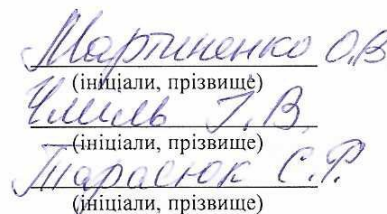 Мартиненко О.В
(ініціали, прізвище)
Чмиль Т.В.
(ініціали, прізвище)
Тарасюк С.Р.
(ініціали, прізвище)